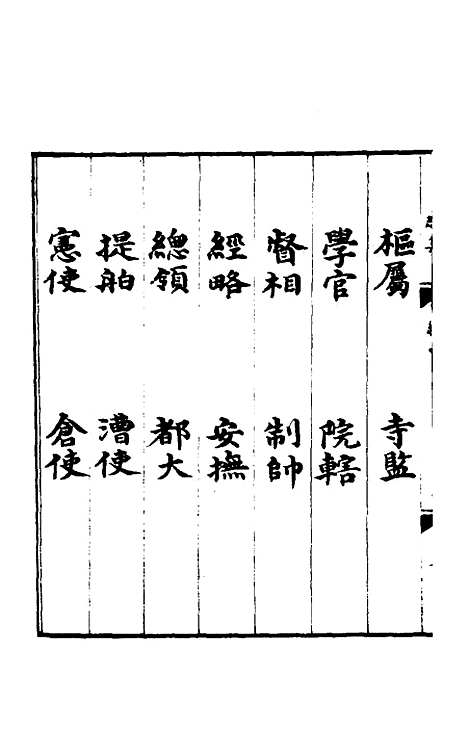 樞屬　寺監
學官　院轄
督相　制帥
經略　安撫
總領　都大
提舶　漕使
憲使　倉使